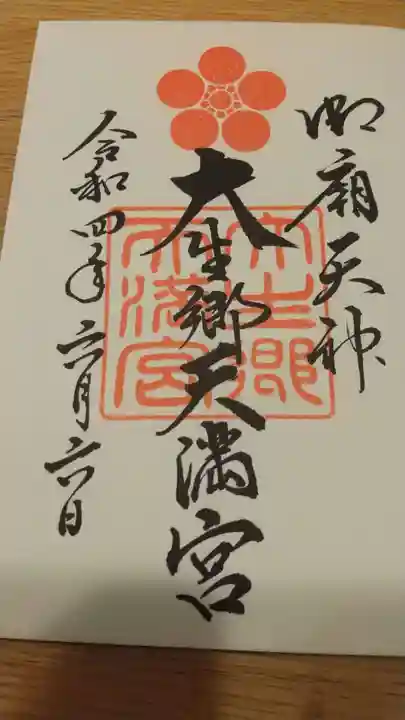 御廟天神
大生郷天満宮
令和四年六月六日
大生郷
天満宮